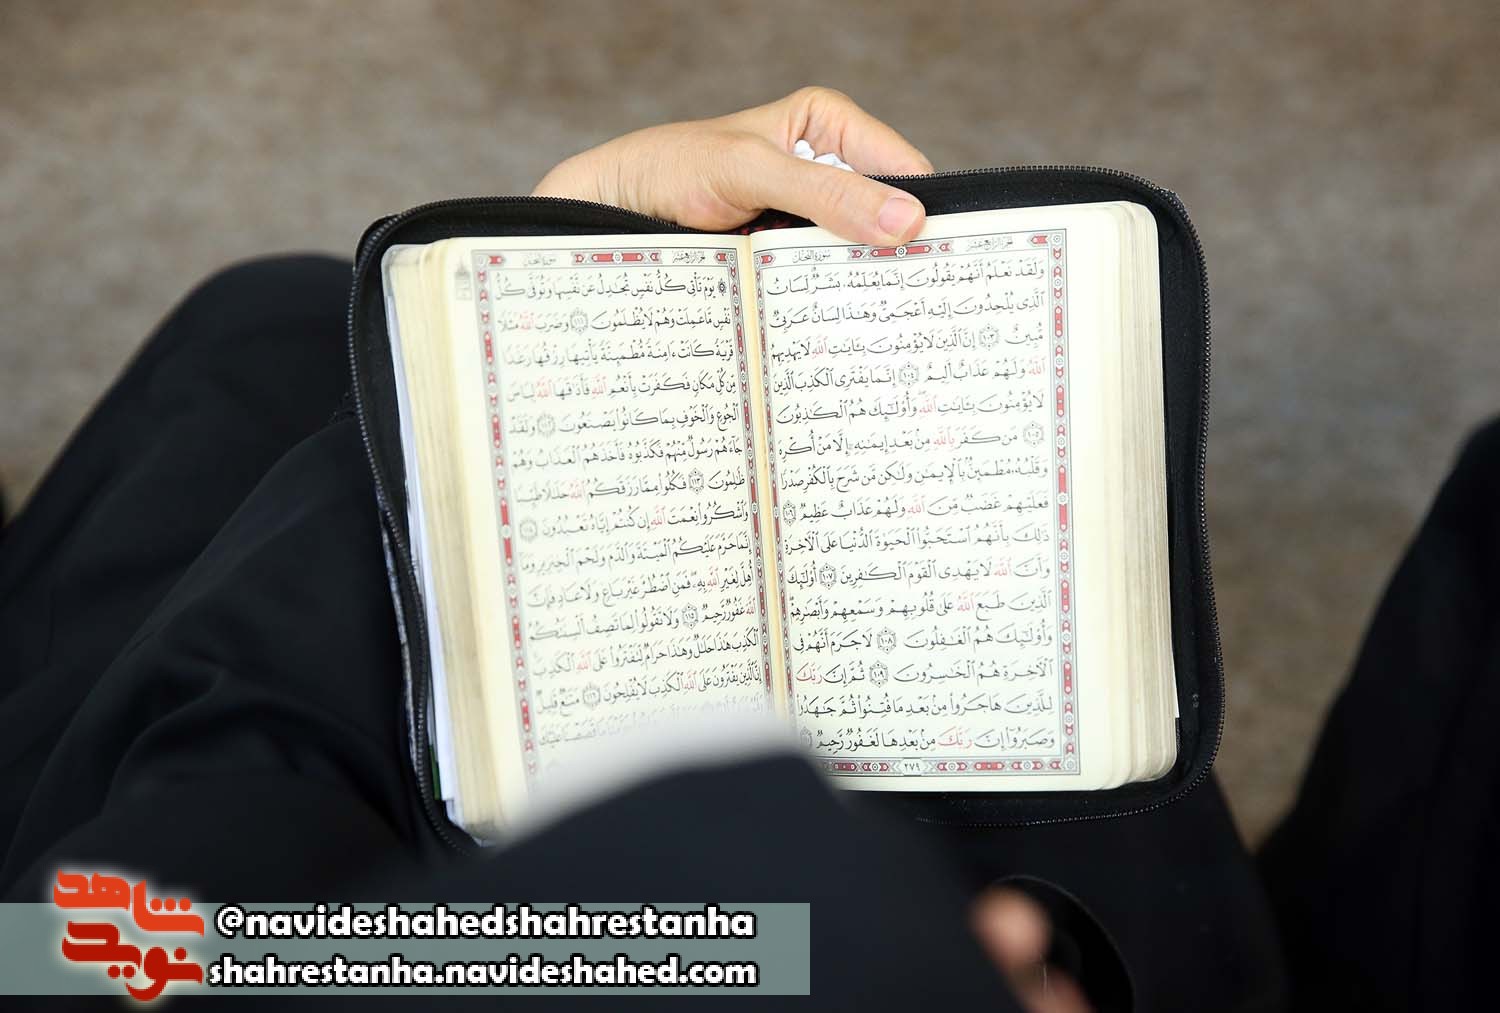 الجزء الرابع عشر
سورة النحل
وَلَقَدْ نَعْلَمُ أَنَّهُمْ يَقُولُونَ إِنَّمَا يُعَلِّمُهُۥ بَشَرٌ ۗ لِّسَانُ
ٱلَّذِى يُلْحِدُونَ إِلَيْهِ أَعْجَمِىٌّ وَهَٰذَا لِسَانٌ عَرَبِىٌّ
مُّبِينٌ ﴿١٠٣﴾ إِنَّ ٱلَّذِينَ لَا يُؤْمِنُونَ بِـَٔايَٰتِ ٱللَّهِ لَا يَهْدِيهِمُ
ٱللَّهُ وَلَهُمْ عَذَابٌ أَلِيمٌ ﴿١٠٤﴾ إِنَّمَا يَفْتَرِى ٱلْكَذِبَ ٱلَّذِينَ
لَا يُؤْمِنُونَ بِـَٔايَٰتِ ٱللَّهِ ۖ وَأُو۟لَٰٓئِكَ هُمُ ٱلْكَٰذِبُونَ
﴿١٠٥﴾ مَن كَفَرَ بِٱللَّهِ مِنۢ بَعْدِ إِيمَٰنِهِۦٓ إِلَّا مَنْ أُكْرِهَ
وَقَلْبُهُۥ مُطْمَئِنٌّۢ بِٱلْإِيمَٰنِ وَلَٰكِن مَّن شَرَحَ بِٱلْكُفْرِ صَدْرًا
فَعَلَيْهِمْ غَضَبٌ مِّنَ ٱللَّهِ وَلَهُمْ عَذَابٌ عَظِيمٌ ﴿١٠٦﴾
ذَٰلِكَ بِأَنَّهُمُ ٱسْتَحَبُّوا۟ ٱلْحَيَوٰةَ ٱلدُّنْيَا عَلَى ٱلْـَٔاخِرَةِ
وَأَنَّ ٱللَّهَ لَا يَهْدِى ٱلْقَوْمَ ٱلْكَٰفِرِينَ ﴿١٠٧﴾ أُو۟لَٰٓئِكَ
ٱلَّذِينَ طَبَعَ ٱللَّهُ عَلَىٰ قُلُوبِهِمْ وَسَمْعِهِمْ وَأَبْصَٰرِهِمْ
وَأُو۟لَٰٓئِكَ هُمُ ٱلْغَٰفِلُونَ ﴿١٠٨﴾ لَا جَرَمَ أَنَّهُمْ فِى
ٱلْـَٔاخِرَةِ هُمُ ٱلْخَٰسِرُونَ ﴿١٠٩﴾ ثُمَّ إِنَّ رَبَّكَ
لِلَّذِينَ هَاجَرُوا۟ مِنۢ بَعْدِ مَا فُتِنُوا۟ ثُمَّ جَٰهَدُوا۟
وَصَبَرُوٓا۟ إِنَّ رَبَّكَ مِنۢ بَعْدِهَا لَغَفُورٌ رَّحِيمٌ
٢٧٩
الجزء الرابع عشر
سورة النحل
۞ يَوْمَ تَأْتِى كُلُّ نَفْسٍ تُجَٰدِلُ عَن نَّفْسِهَا وَتُوَفَّىٰ كُلُّ
نَفْسٍ مَّا عَمِلَتْ وَهُمْ لَا يُظْلَمُونَ ﴿١١١﴾ وَضَرَبَ ٱللَّهُ مَثَلًا
قَرْيَةً كَانَتْ ءَامِنَةً مُّطْمَئِنَّةً يَأْتِيهَا رِزْقُهَا رَغَدًا
مِّن كُلِّ مَكَانٍ فَكَفَرَتْ بِأَنْعُمِ ٱللَّهِ فَأَذَٰقَهَا ٱللَّهُ لِبَاسَ
ٱلْجُوعِ وَٱلْخَوْفِ بِمَا كَانُوا۟ يَصْنَعُونَ ﴿١١٢﴾ وَلَقَدْ
جَآءَهُمْ رَسُولٌ مِّنْهُمْ فَكَذَّبُوهُ فَأَخَذَهُمُ ٱلْعَذَابُ وَهُمْ
ظَٰلِمُونَ ﴿١١٣﴾ فَكُلُوا۟ مِمَّا رَزَقَكُمُ ٱللَّهُ حَلَٰلًا طَيِّبًا
وَٱشْكُرُوا۟ نِعْمَتَ ٱللَّهِ إِن كُنتُمْ إِيَّاهُ تَعْبُدُونَ ﴿١١٤﴾
إِنَّمَا حَرَّمَ عَلَيْكُمُ ٱلْمَيْتَةَ وَٱلدَّمَ وَلَحْمَ ٱلْخِنزِيرِ وَمَآ
أُهِلَّ لِغَيْرِ ٱللَّهِ بِهِۦ ۖ فَمَنِ ٱضْطُرَّ غَيْرَ بَاغٍ وَلَا عَادٍ فَإِنَّ
ٱللَّهَ غَفُورٌ رَّحِيمٌ ﴿١١٥﴾ وَلَا تَقُولُوا۟ لِمَا تَصِفُ أَلْسِنَتُكُمُ
ٱلْكَذِبَ هَٰذَا حَلَٰلٌ وَهَٰذَا حَرَامٌ لِّتَفْتَرُوا۟ عَلَى ٱللَّهِ ٱلْكَذِبَ
إِنَّ ٱلَّذِينَ يَفْتَرُونَ عَلَى ٱللَّهِ ٱلْكَذِبَ لَا يُفْلِحُونَ ﴿١١٦﴾ مَتَٰعٌ قَلِيلٌ
مَا قَصَصْنَا عَلَيْكَ
شاهد
نوید
@navideshahedshahrestanha
shahrestanha.navideshahed.com